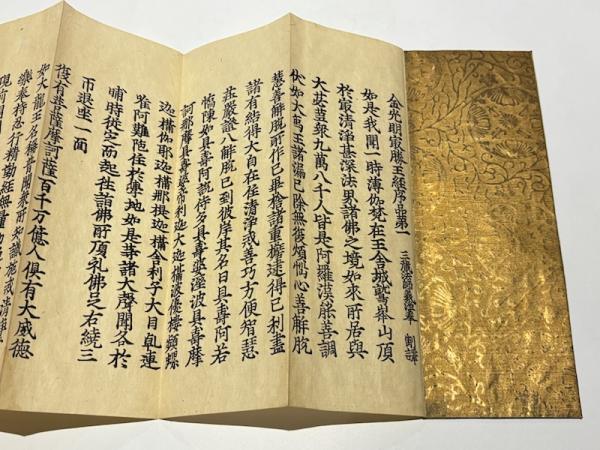 金光明最勝王經序品第一
三藏法師義淨奉 制譯
如是我聞一時薄伽梵在王舍城鷲峯山頂
於最清淨甚深法界諸佛之境如來所居與
大苾芻衆九萬八千人皆是阿羅漢能善調
伏如大為王諸漏已除無復煩惱心善解脫
慧善解脫所作已畢捨諸重擔逮得己利盡
諸有結得大自在住清淨戒善巧方便智慧
莊嚴證八解脫已到彼岸其名曰具壽阿若
憍陳如具壽阿說侍多具壽婆溼波具壽摩
訶那摩具壽婆帝利迦大迦攝波優樓頻螺
迦攝伽耶迦攝那提迦攝舍利子大目乹連
唯阿難陀住於學地如是等諸大聲聞各於
晡時從定而起往詣佛所頂礼佛足右繞三
帀退坐一面
復有菩薩摩訶薩百千万億人俱有大威德
如大龍王名稱普聞衆所知識施戒清淨
樂奉持忍行精勤經無量
現前